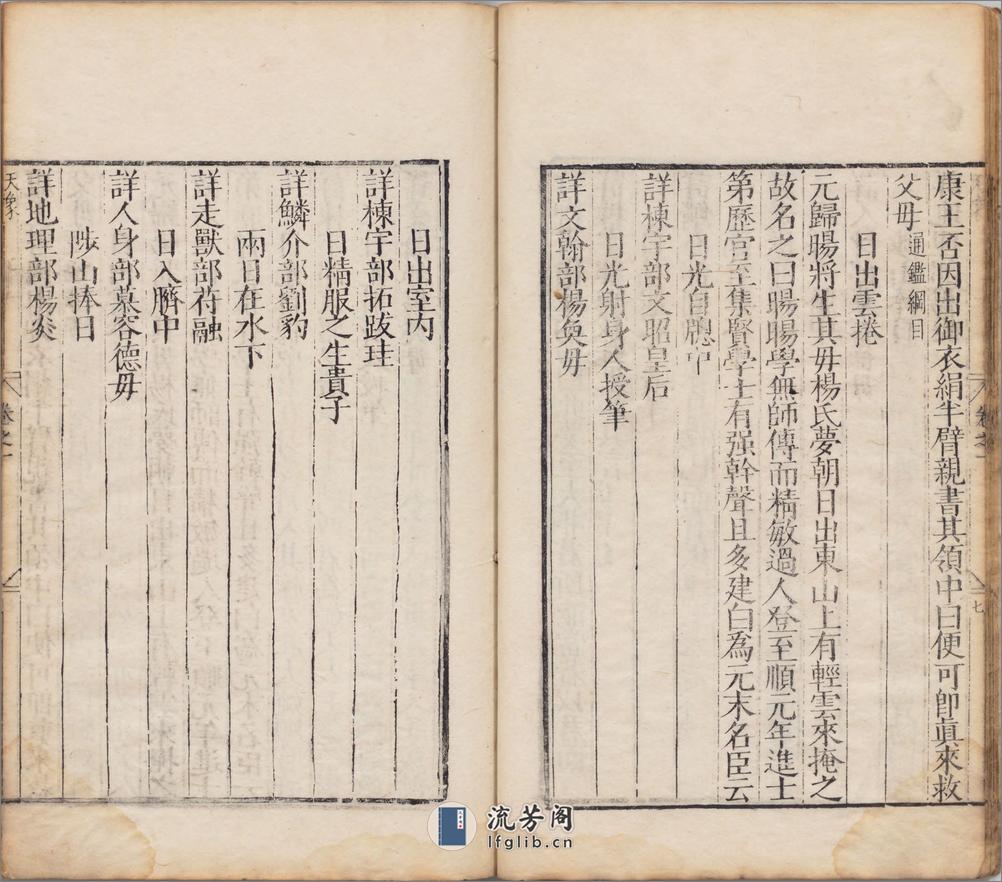 康王否因出御衣絹半臂親書其領中曰便可即眞來救
父母通鑑綱目
日出雲捲
元歸暘將生其母楊氏夢朝日出東山上有輕雲來掩之
故名之曰暘暘學無師傳而精敏過人登至順元年進士
第歷官至集賢學士有强幹聲且多建白為元末名臣云
日光自牕中
詳棟宇部文昭皇后
日光射身人授筆
詳文翰部楊奐母
卷之一
七
日出室内
詳棟宇部拓跋珪
日精服之生貴子
詳鱗介部劉豹
兩日在水下
詳走獸部苻融
日入臍中
詳人身部慕容德母
陟山捧日
詳地理部楊炎
天象
卷之一
流芳阁
lfglib.cn